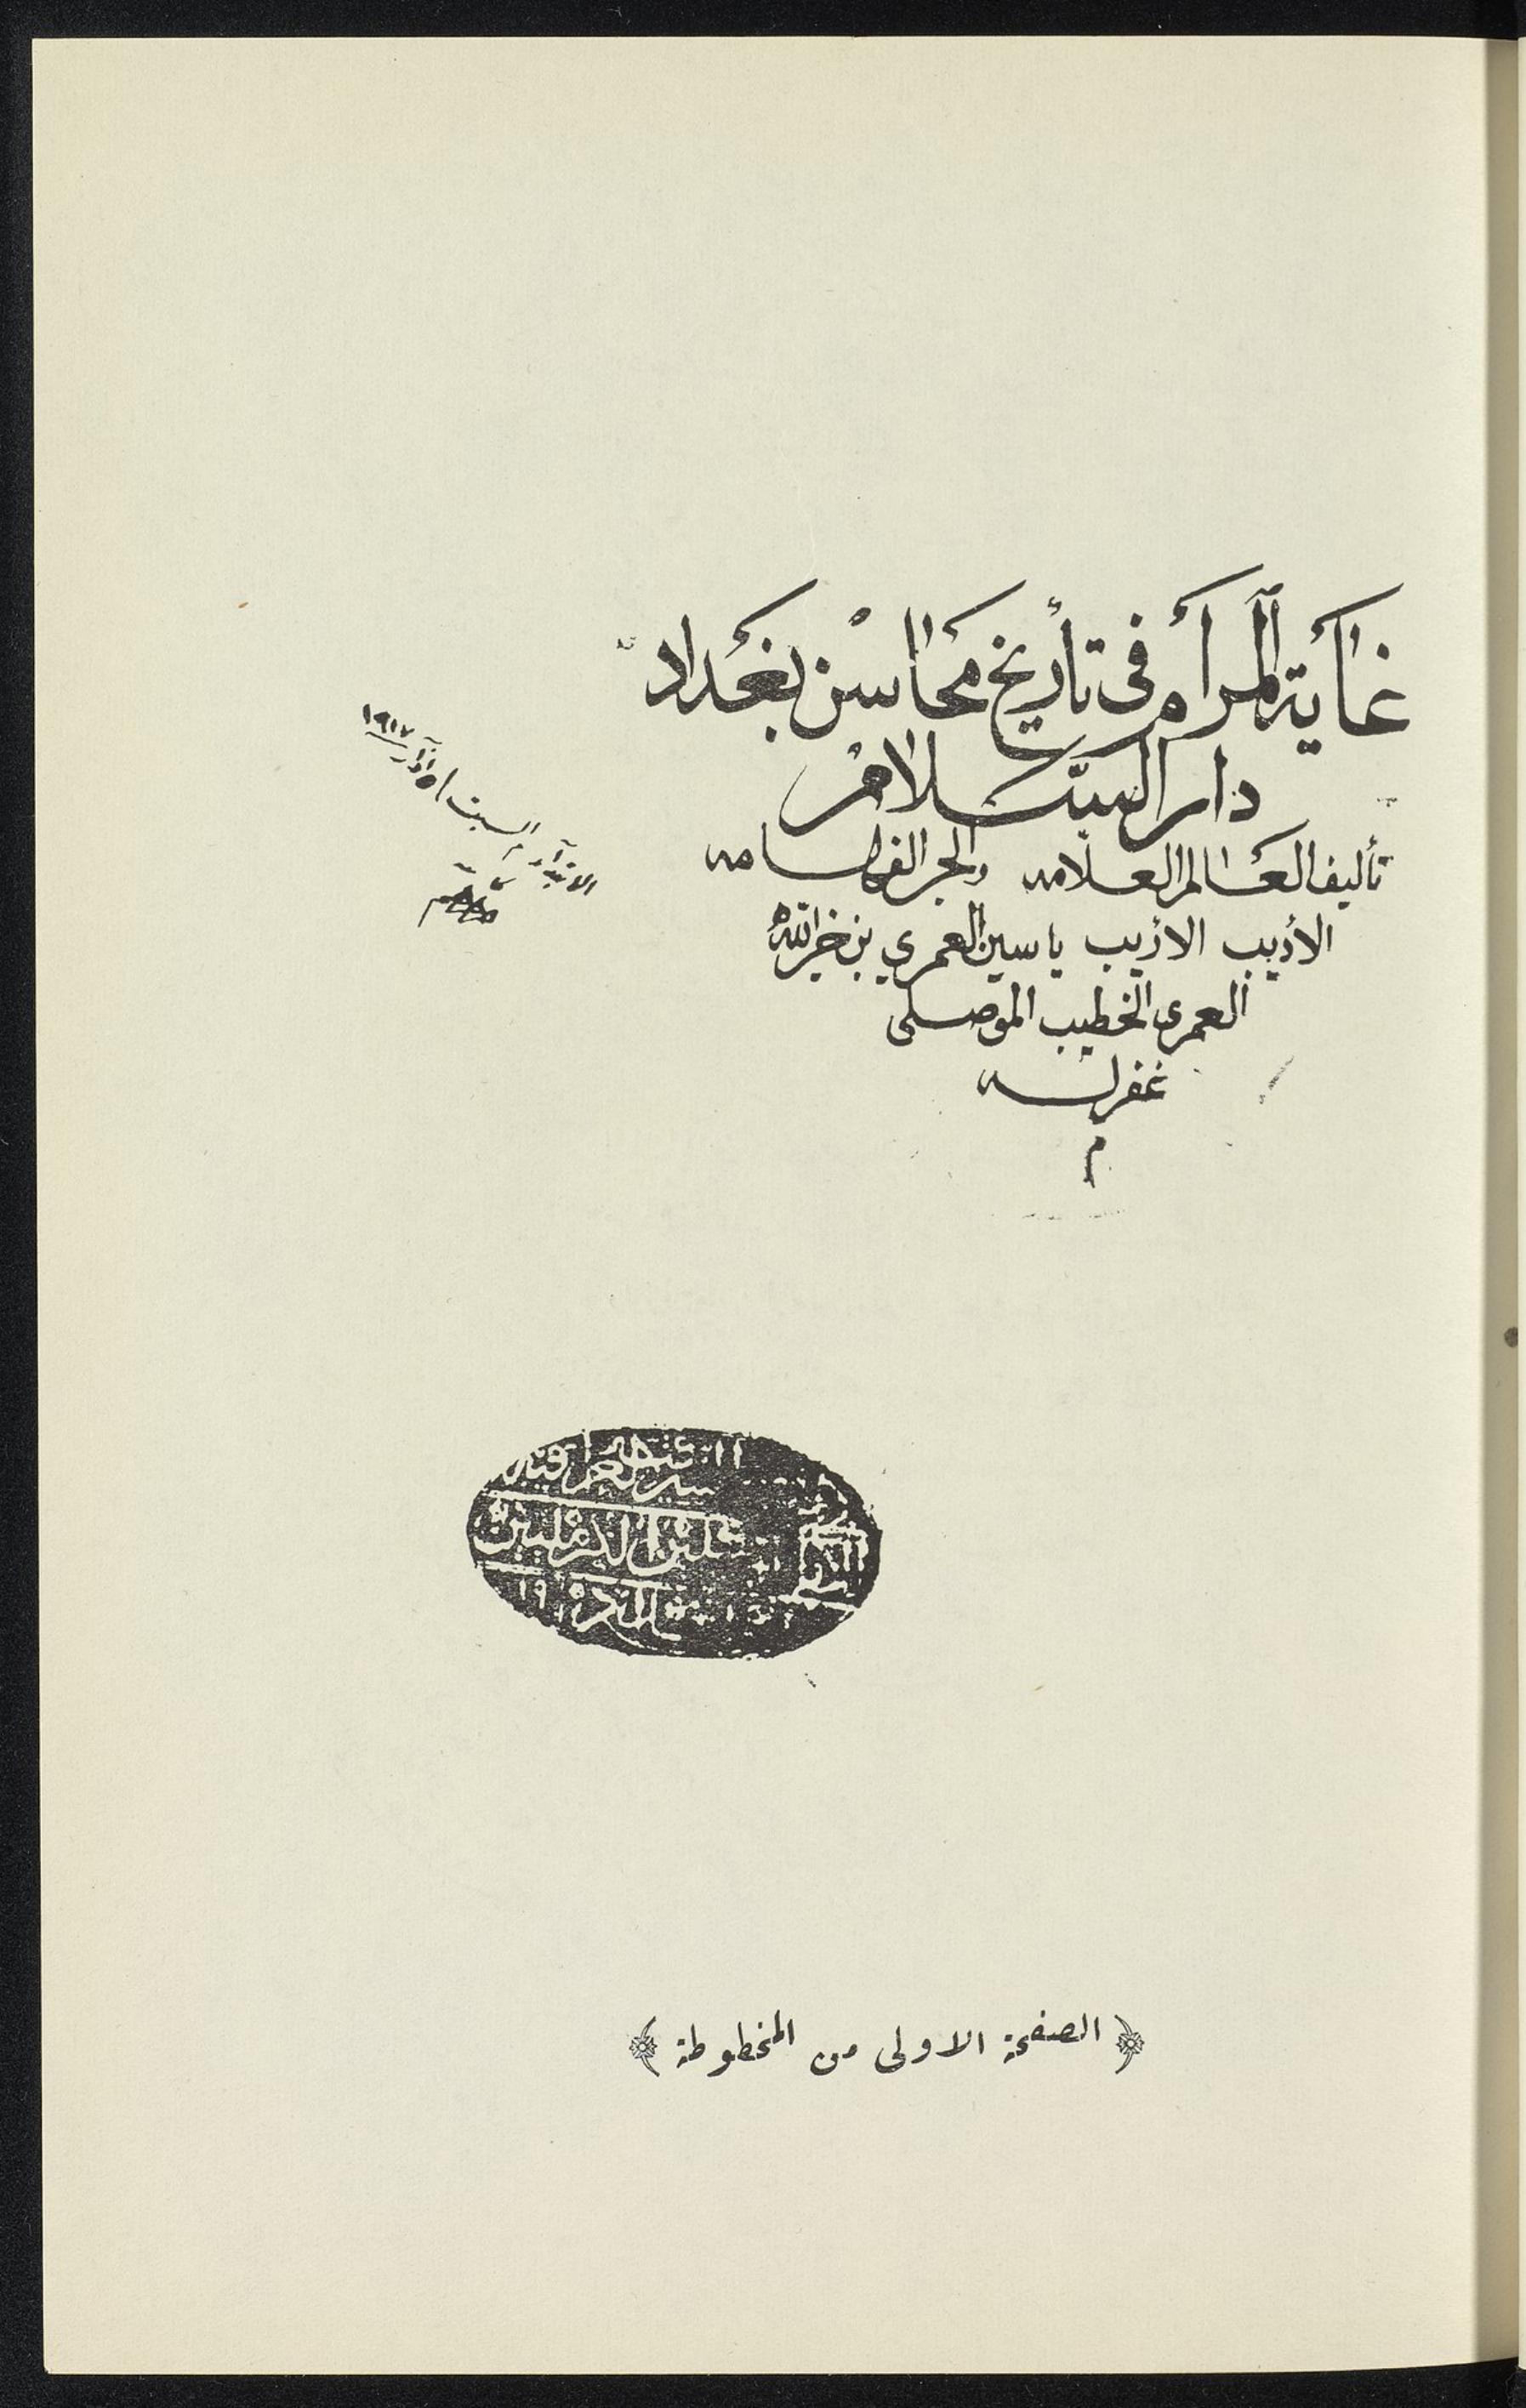 غاية المرام في تأريخ محاسن بغداد
دار السلام
تأليف العالم العلامه والحبر الفهامه
الأديب الاريب ياسين العمري بن خير الله
العمرى الخطيب الموصلى
غفر له
م
السبت ١٥ آذار ١٩١٧
الكرمليين
﴿ الصفحة الاولى من المخطوطة ﴾